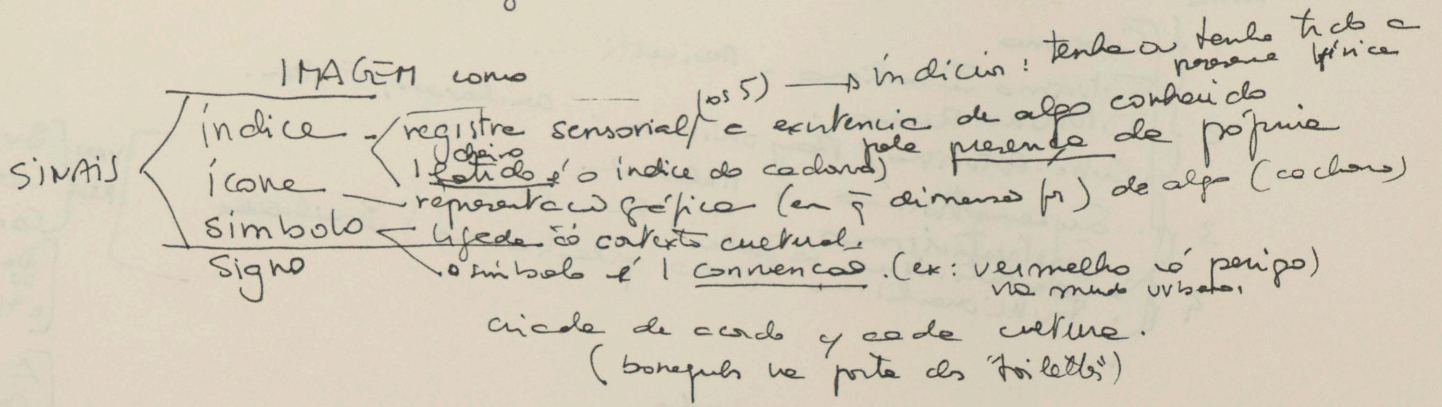 IMAGEM como
(os 5) → indícios: tenha ou tenha tido a
presença física
SINAIS
índice - registre sensorial / a existência de algo conhecido
pela presença da própria
cheiro
1 latido é o índice do cachorro)
ícone - representação gráfica (em q dimensão) de algo (cachorro)
símbolo - ligada có contexto cultural.
o símbolo é 1 convenção. (ex: vermelho có perigo)
no mundo urbano,
signo
criada de acordo cada cultura.
(bonequinhos na porta dos "toilettes")